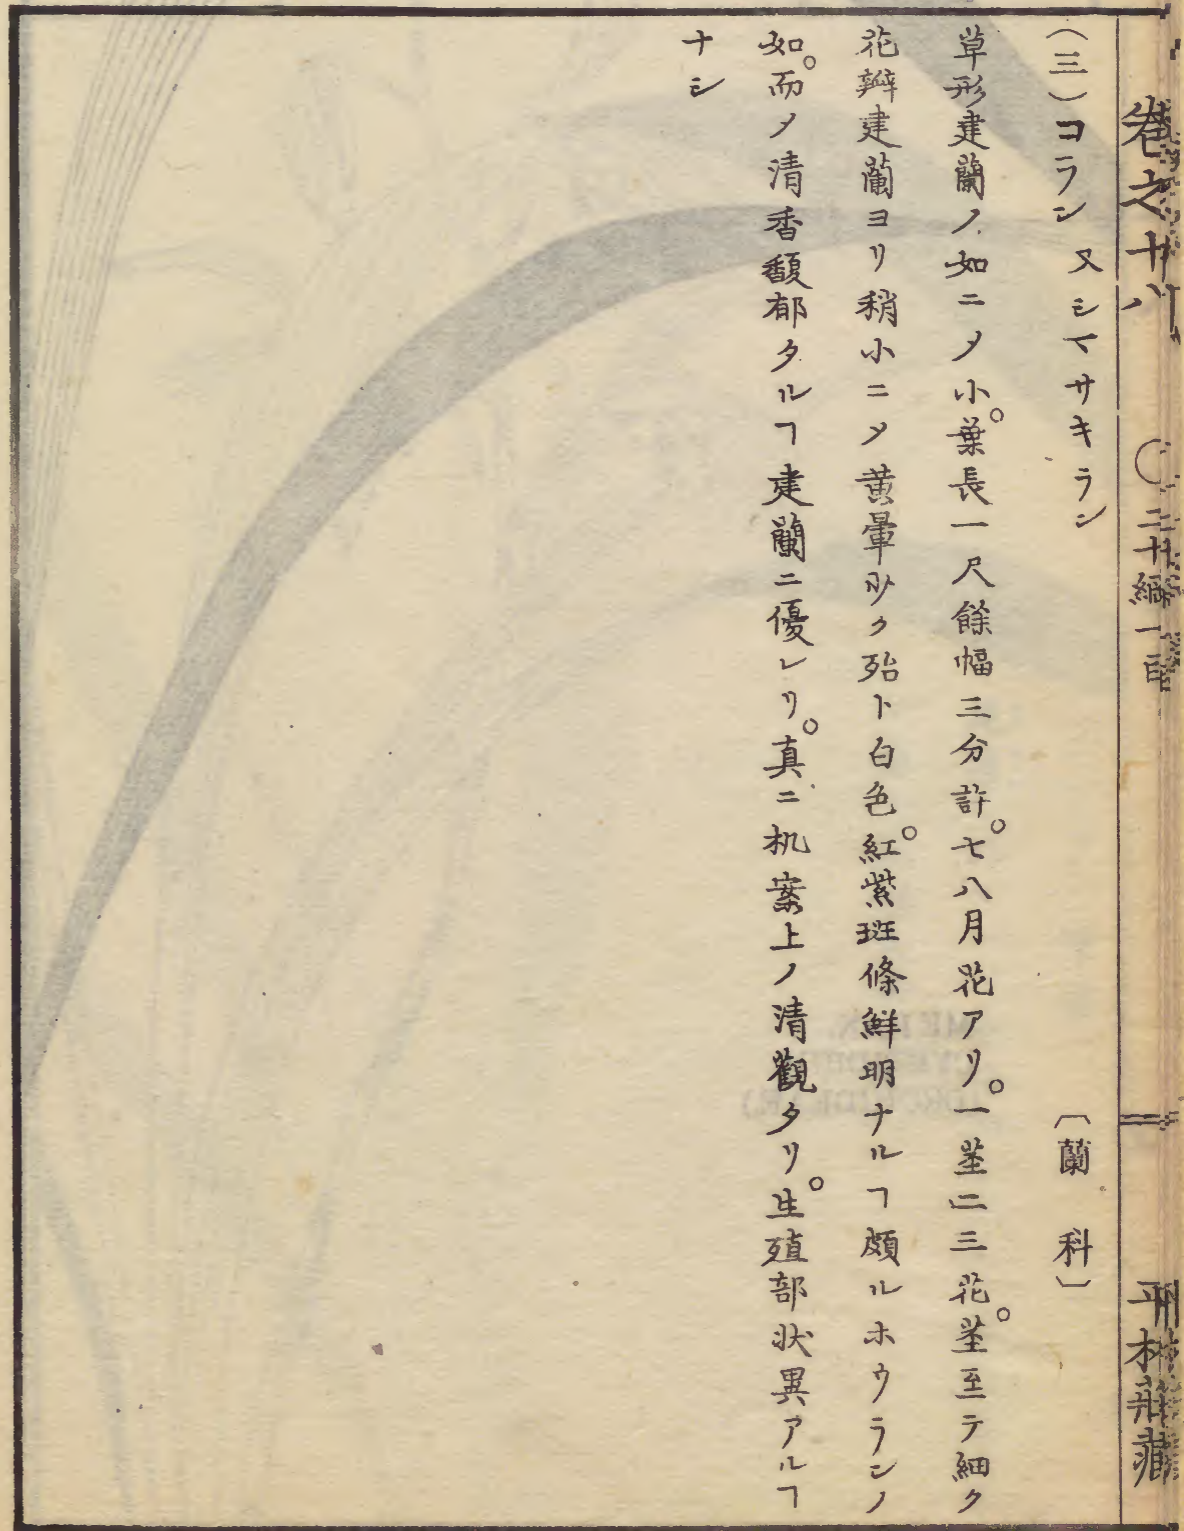 卷之十八 〇二十綱一目
(三)コラン 又シマサキラン 〔蘭科〕
草形建蘭ノ如ニメ小。葉長一尺餘幅三分許。七八月花アリ。一莖二三花。莖至テ細ク
花瓣建蘭ヨリ稍小ニメ黄暈少ク殆ト白色。紅紫斑條鮮明ナルヿ頗ルホウランノ
如。而メ清香馥郁タルヿ建蘭ニ優レリ。真ニ机案上ノ清觀タリ。生殖部状異アルヿ
ナシ